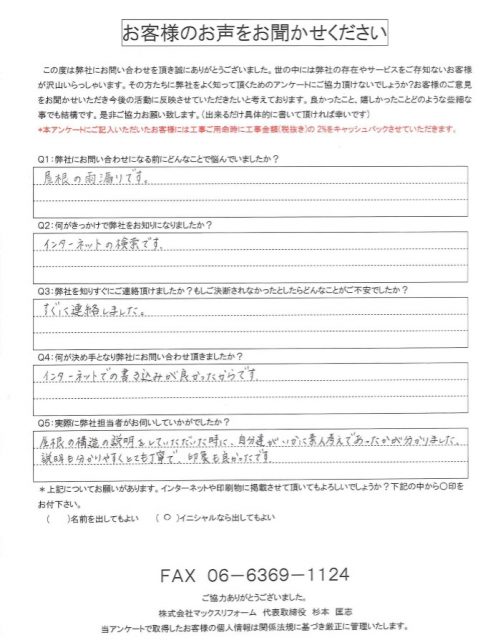 お客様のお声をお聞かせください
この度は弊社にお問い合わせを頂き誠にありがとうございました。世の中には弊社の存在やサービスをご存知ないお客様
が沢山いらっしゃいます。その方たちに弊社をよく知って頂くためのアンケートにご協力頂けないでしょうか?お客様のご意見
をお聞かせいただき今後の活動に反映させていただきたいと考えております。良かったこと、嬉しかったことどのような些細な
事でも結構です。是非ご協力お願い致します。(出来るだけ具体的に書いて頂ければ幸いです)
*本アンケートにご記入いただいたお客様には工事ご用命時に工事金額(税抜き)の 2%をキャッシュバックさせていただきます。
Q1:弊社にお問い合わせになる前にどんなことで悩んでいましたか?
屋根の雨漏りです。
Q2:何がきっかけで弊社をお知りになりましたか?
インターネットの検索です。
Q3:弊社を知りすぐにご連絡頂けましたか?もしご決断されなかったとしたらどんなことがご不安でしたか?
すぐに連絡しました。
Q4:何が決め手となり弊社にお問い合わせ頂きましたか?
インターネットでの書き込みが良かったからです。
Q5:実際に弊社担当者がお伺いしていかがでしたか?
屋根の構造の説明をしていただいた時に、自分達がいかに素人考えであったかが分かりました。
説明も分かりやすくとても丁寧で、印象も良かったです。
*上記についてお願いがあります。インターネットや印刷物に掲載させて頂いてもよろしいでしょうか?下記の中から〇印を
をお付下さい。
( )名前を出してもよい (〇)イニシャルなら出してもよい
FAX 06-6369-1124
ご協力ありがとうございました。
株式会社マックスリフォーム 代表取締役 杉本 匡志
当アンケートで取得したお客様の個人情報は関係法規に基づき厳正に管理いたします。